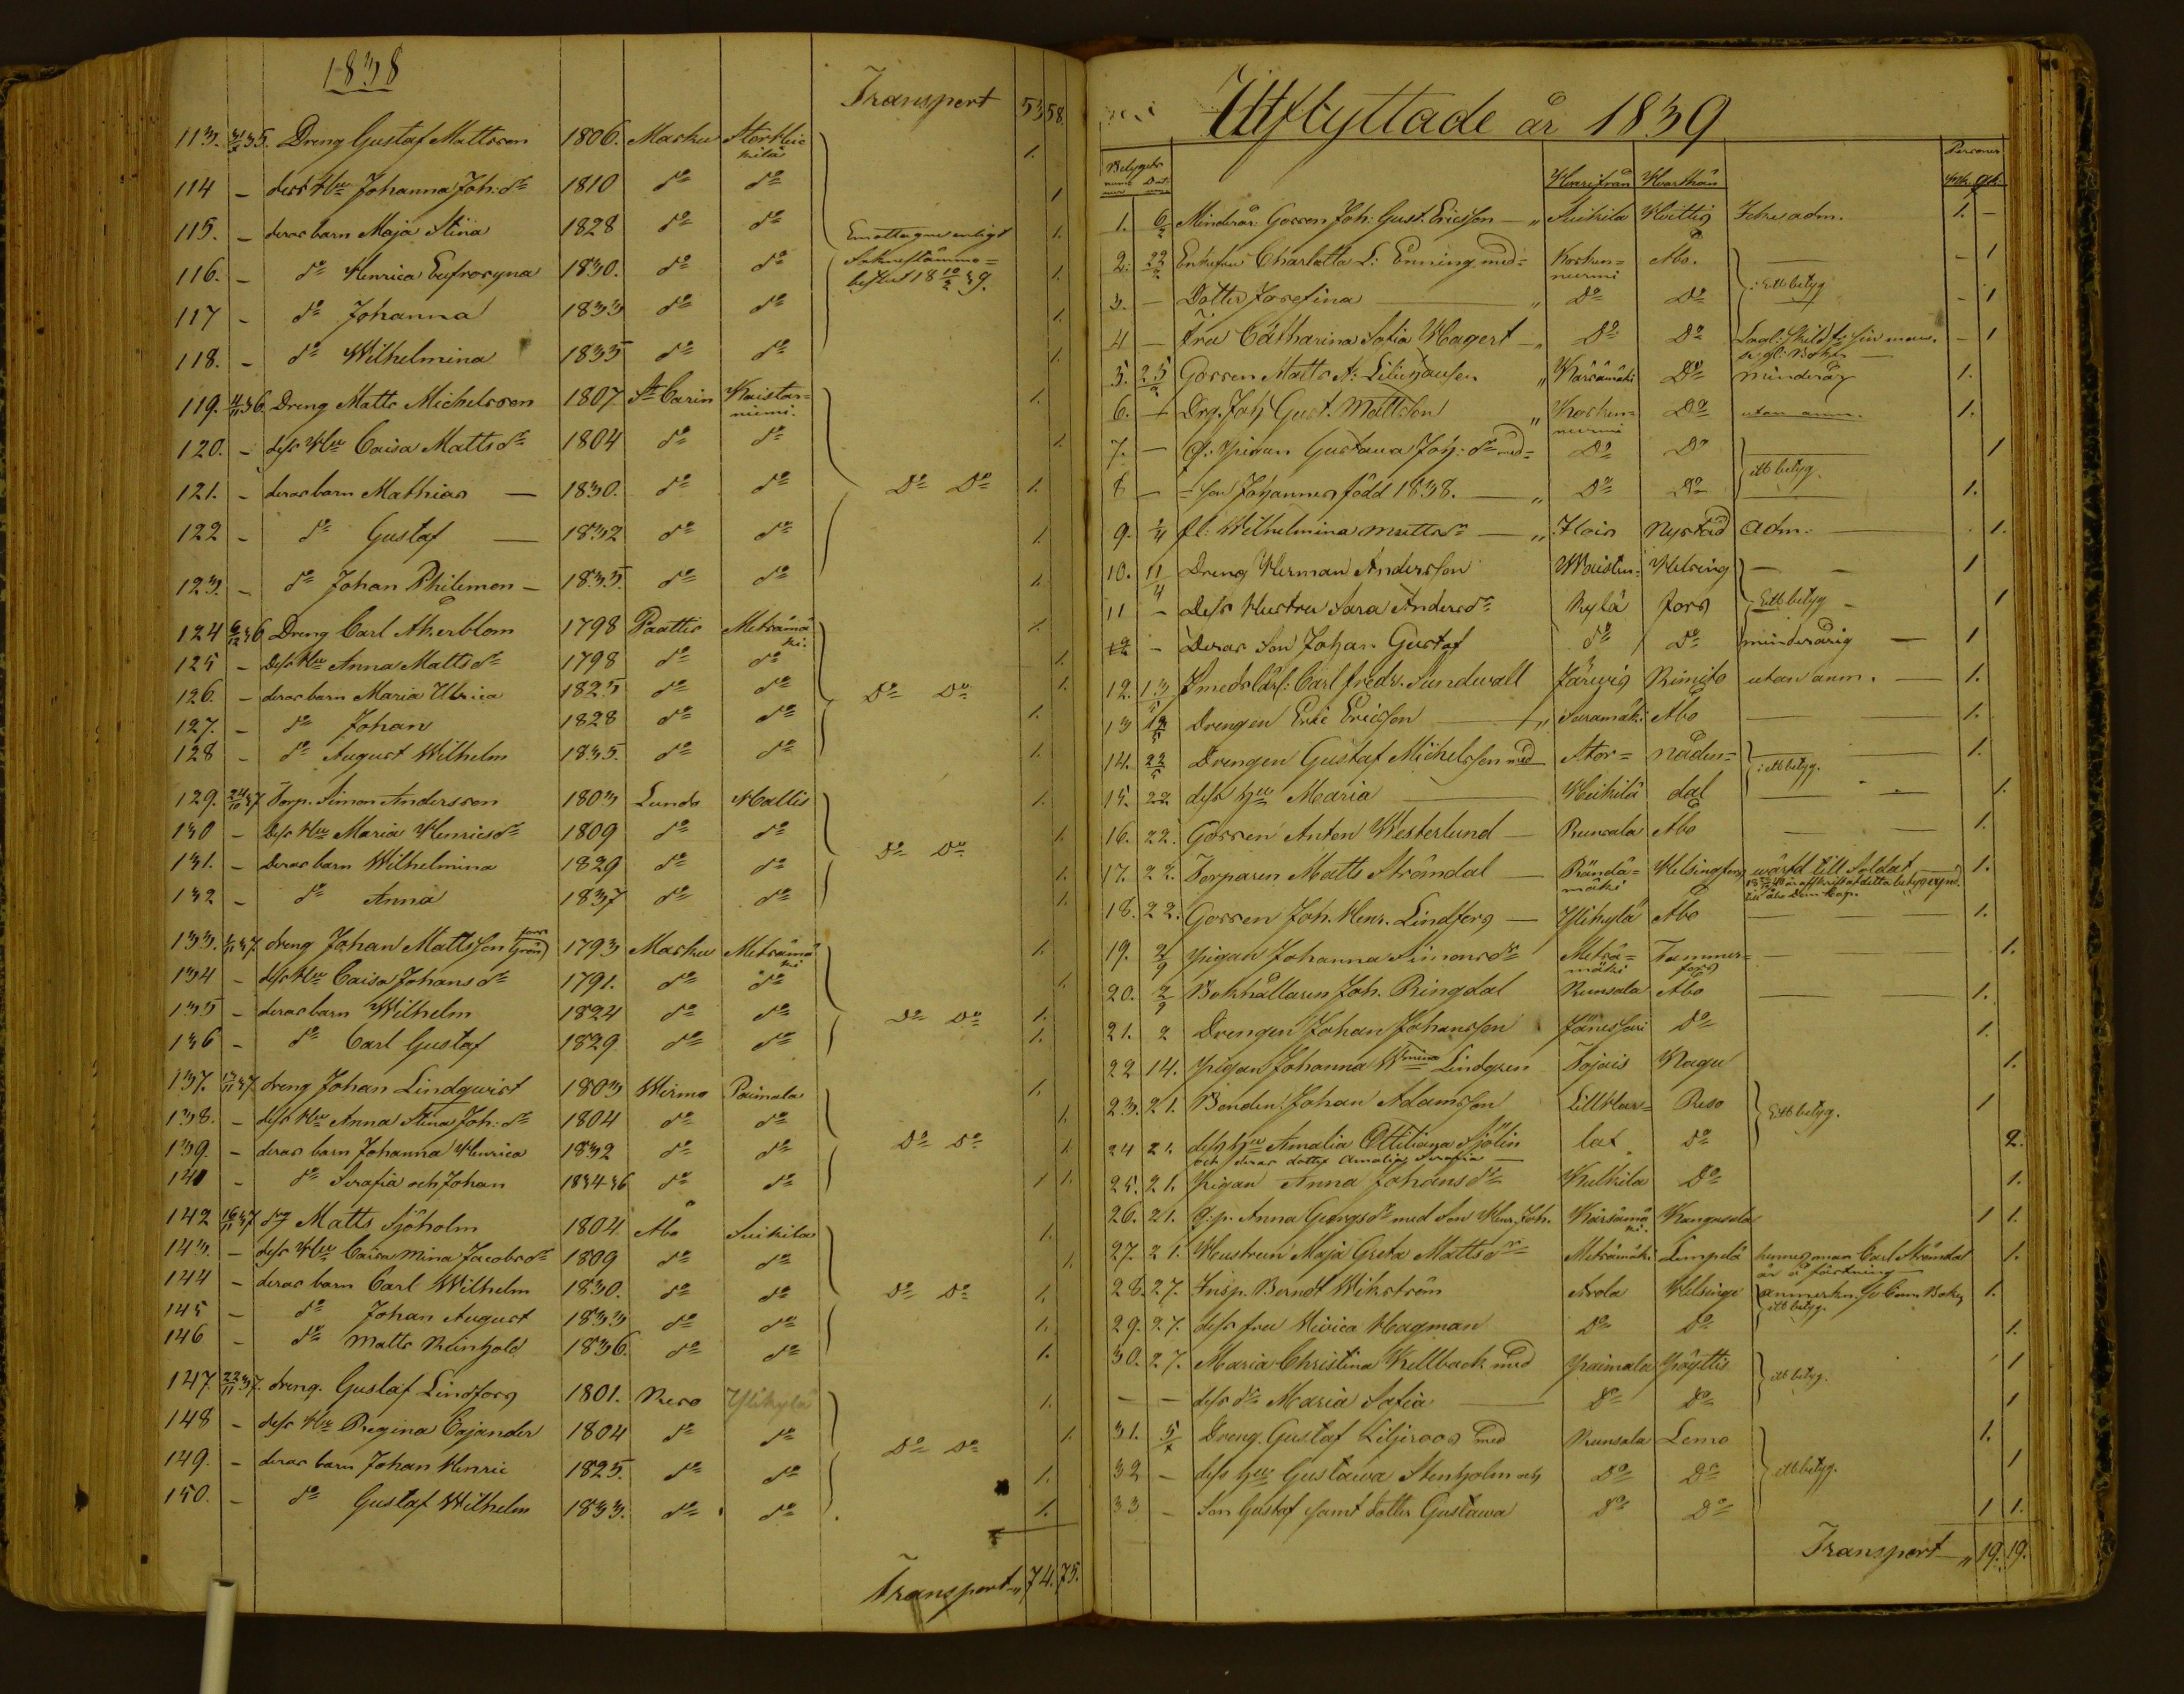 1838
Transport 53 58.
113. 31/7 35. Dreng Gustaf Mattsson 1806. Masku Storhei-kilä 1.
114 - dess Hu Johanna Joh: dr 1810 do do 1.
115. - deras barn Maja Stina 1828 do do Emottagne enligt 1.
116. - do Henrica Eufrosyna 1830. do do Sokne stämmo= 1.
117 - do Johanna 1833 do do beslut 18 10/2 39. 1.
118. - do Wilhelmina 1835 do do 1.
119. 11/11 36. Dreng Matts Michelsson 1807 St Carin Kaistar=niemi. 1.
120. - dess Hu Caisa Matts dr 1804 do do 1.
121. - deras barn Mathias — 1830. do do Do Do 1.
122 - do Gustaf — 1832 do do 1.
123. - do Johan Philemon — 1835. do do 1.
124 6/12 36 Dreng Carl Åkerblom 1798 Paattis Metsämäki. 1.
125 - Dess Hu Anna Matts dr 1798 do do 1.
126. - deras barn Maria Ulrica 1825 do do Do Do 1.
127. - do Johan 1828 do do 1.
128 - do August Wilhelm 1835. do do 1.
129. 24/10 37 Torp. Simon Andersson 1803 Lundo Hallis 1.
130 - Dess Hu Maria Henrics dr 1809 do do 1.
131. - Deras barn Wilhelmina 1829 do do Do Do 1.
132 - do Anna 1837 do do 1.
133. 37. dreng Johan Mattsson Grön 1793 Masku Metsämäki 1.
134 - dess Hu Caisa Johans dr 1791. do do 1.
135 - deras barn Wilhelm 1824 do do Do Do 1.
136 - do Carl Gustaf 1829 do do 1.
137. 13/11 37. dreng Johan Lindqwist 1803 Wirmo Paimala 1.
138. - dess Hu Anna Stina Joh: dr 1804 do do 1.
139. - deras barn Johanna Henrica 1832 do do Do Do 1.
140 - do Serafia och Johan 1834-36 do do 1 1.
142 16/11 37 drg Matts Sjöholm 1804. Åbo Suikila 1.
143. - dess Hu Caisa Mina Jacobs dr 1809 do do 1.
144 - deras barn Carl Wilhelm 1830. do do Do Do 1.
145 - do Johan August 1833 do do 1.
146 - do Matts Reinhold 1836. do do 1.
147 22/11 37. dreng. Gustaf Lindfors 1801. Reso Ylikylä 1.
148 - dess Hu Regina Cajander 1804 do do 1.
149. - deras barn Johan Henric 1825. do do Do Do 1.
150. - do Gustaf Wilhelm 1833. do do 1.
Transport „ 74. 75.
Utflyttade år 1839
Betygets Personer
nummer Datum Hvarifrån Hvarthän Mk. Qk.
1. 6/2 Minderår. Gossen Joh: Gust. Ericsson — „ Suikila Hvittis Icke adm. 1. -
2. 22/2 Enkefru Charlotta L: Enning med= Kosken=nurmi Åbo. - 1
3. — Dotter Josefina — „ Do Do i: Ett betyg - 1
4 — Fru Catharina Sofia Hagert — „ Do Do Lagl: skild fr. sin man. - 1
5. 25/2 Gossen Matts A: Liliehausen „ Kärsämäki Do minderåg 1.
6. — Drg. Joh Gust. Mattsson „ Kosken=nurmi Do utan anm. 1.
7. — Q: Pigan Gustava Joh: dr med= Do Do 1
8 — = son Johannes född 1838. — „ Do Do ett betyg. 1.
9. 2/4 fl: Wilhelmina Matts dr — „ Hois Nystad Adm. — 1.
10. 11/4 Dreng Herman Andersson Woisten= Helsing — — 1
11 - Dess Hustru Sara Anders dr kylä fors Ett betyg — 1
12 - Deras Son Johan Gustaf do Do minderårig — 1
12. 13/5 Smeds lärl: Carl Fredr. Sundwall Järwis Rimito utan anm. — 1.
13 Drengen Eric Ericsson — „ Saramäki Åbo — 1.
14. 22/5 Drengen Gustaf Michelsson med Stor= Nådin= — 1.
15. 22. dess hu Maria — Heikilä dal i: ett betyg. — 1.
16. 22. Gossen Anton Westerlund — Runsala Åbo — — 1.
17. 22. Torparen Matts Strömdal — Rändä=mäki Helsingfors wärfd till Soldat 1.
18. 22. Gossen Joh. Henr. Lindfors — Ylikylä Åbo — 1.
19. 2/9 Pigan Johanna Simons dr Metsä=mäki Tammer=fors — — 1.
20. 2/9 Bokhållaren Joh. Ringdal Runsala Åbo — 1.
21. 2 Drengen Johan Johansson Jänessari Do 1.
22 14. Pigan Johanna Wmina Lindgren Tojais Nagu 1.
23. 21. Bonden Johan Adamsson Lill Har= Reso 1
24 21. dess hu Amalia Ottiliana Sjölin lax do Ett betyg. 2.
och deras dotter Amalia Serafia —
25. 21. Pigan Anna Johans dr Kulkila Do 1.
26. 21. Q: p. Anna Georgs dr med son Henr. Joh. Kärsämäki. Kangasala 1 1.
27. 21. Hustrun Maja Greta Matts dr Metsämäki Lempelä hennes man Carl Strömdal 1.
är å fästning —
28. 27. Insp. Berndt Wikström Arola Helsinge anmerkn. se Com. Boken 1.
29. 27. dess fru Ulrica Hagman Do Do ett betyg. 1.
30. 27. Maria Christina Kellback med Paimala Pöyttis 1
— — dess dr Maria Sofia — Do Do ett betyg. 1
31. Dreng. Gustaf Liljeroos med Runsala Lemo 1.
32 — dess hu Gustawa Stenholm och Do Do ett betyg. 1
33 — Son Gustaf samt dotter Gustawa Do Do 1 1.
Transport — „ 19. 19.